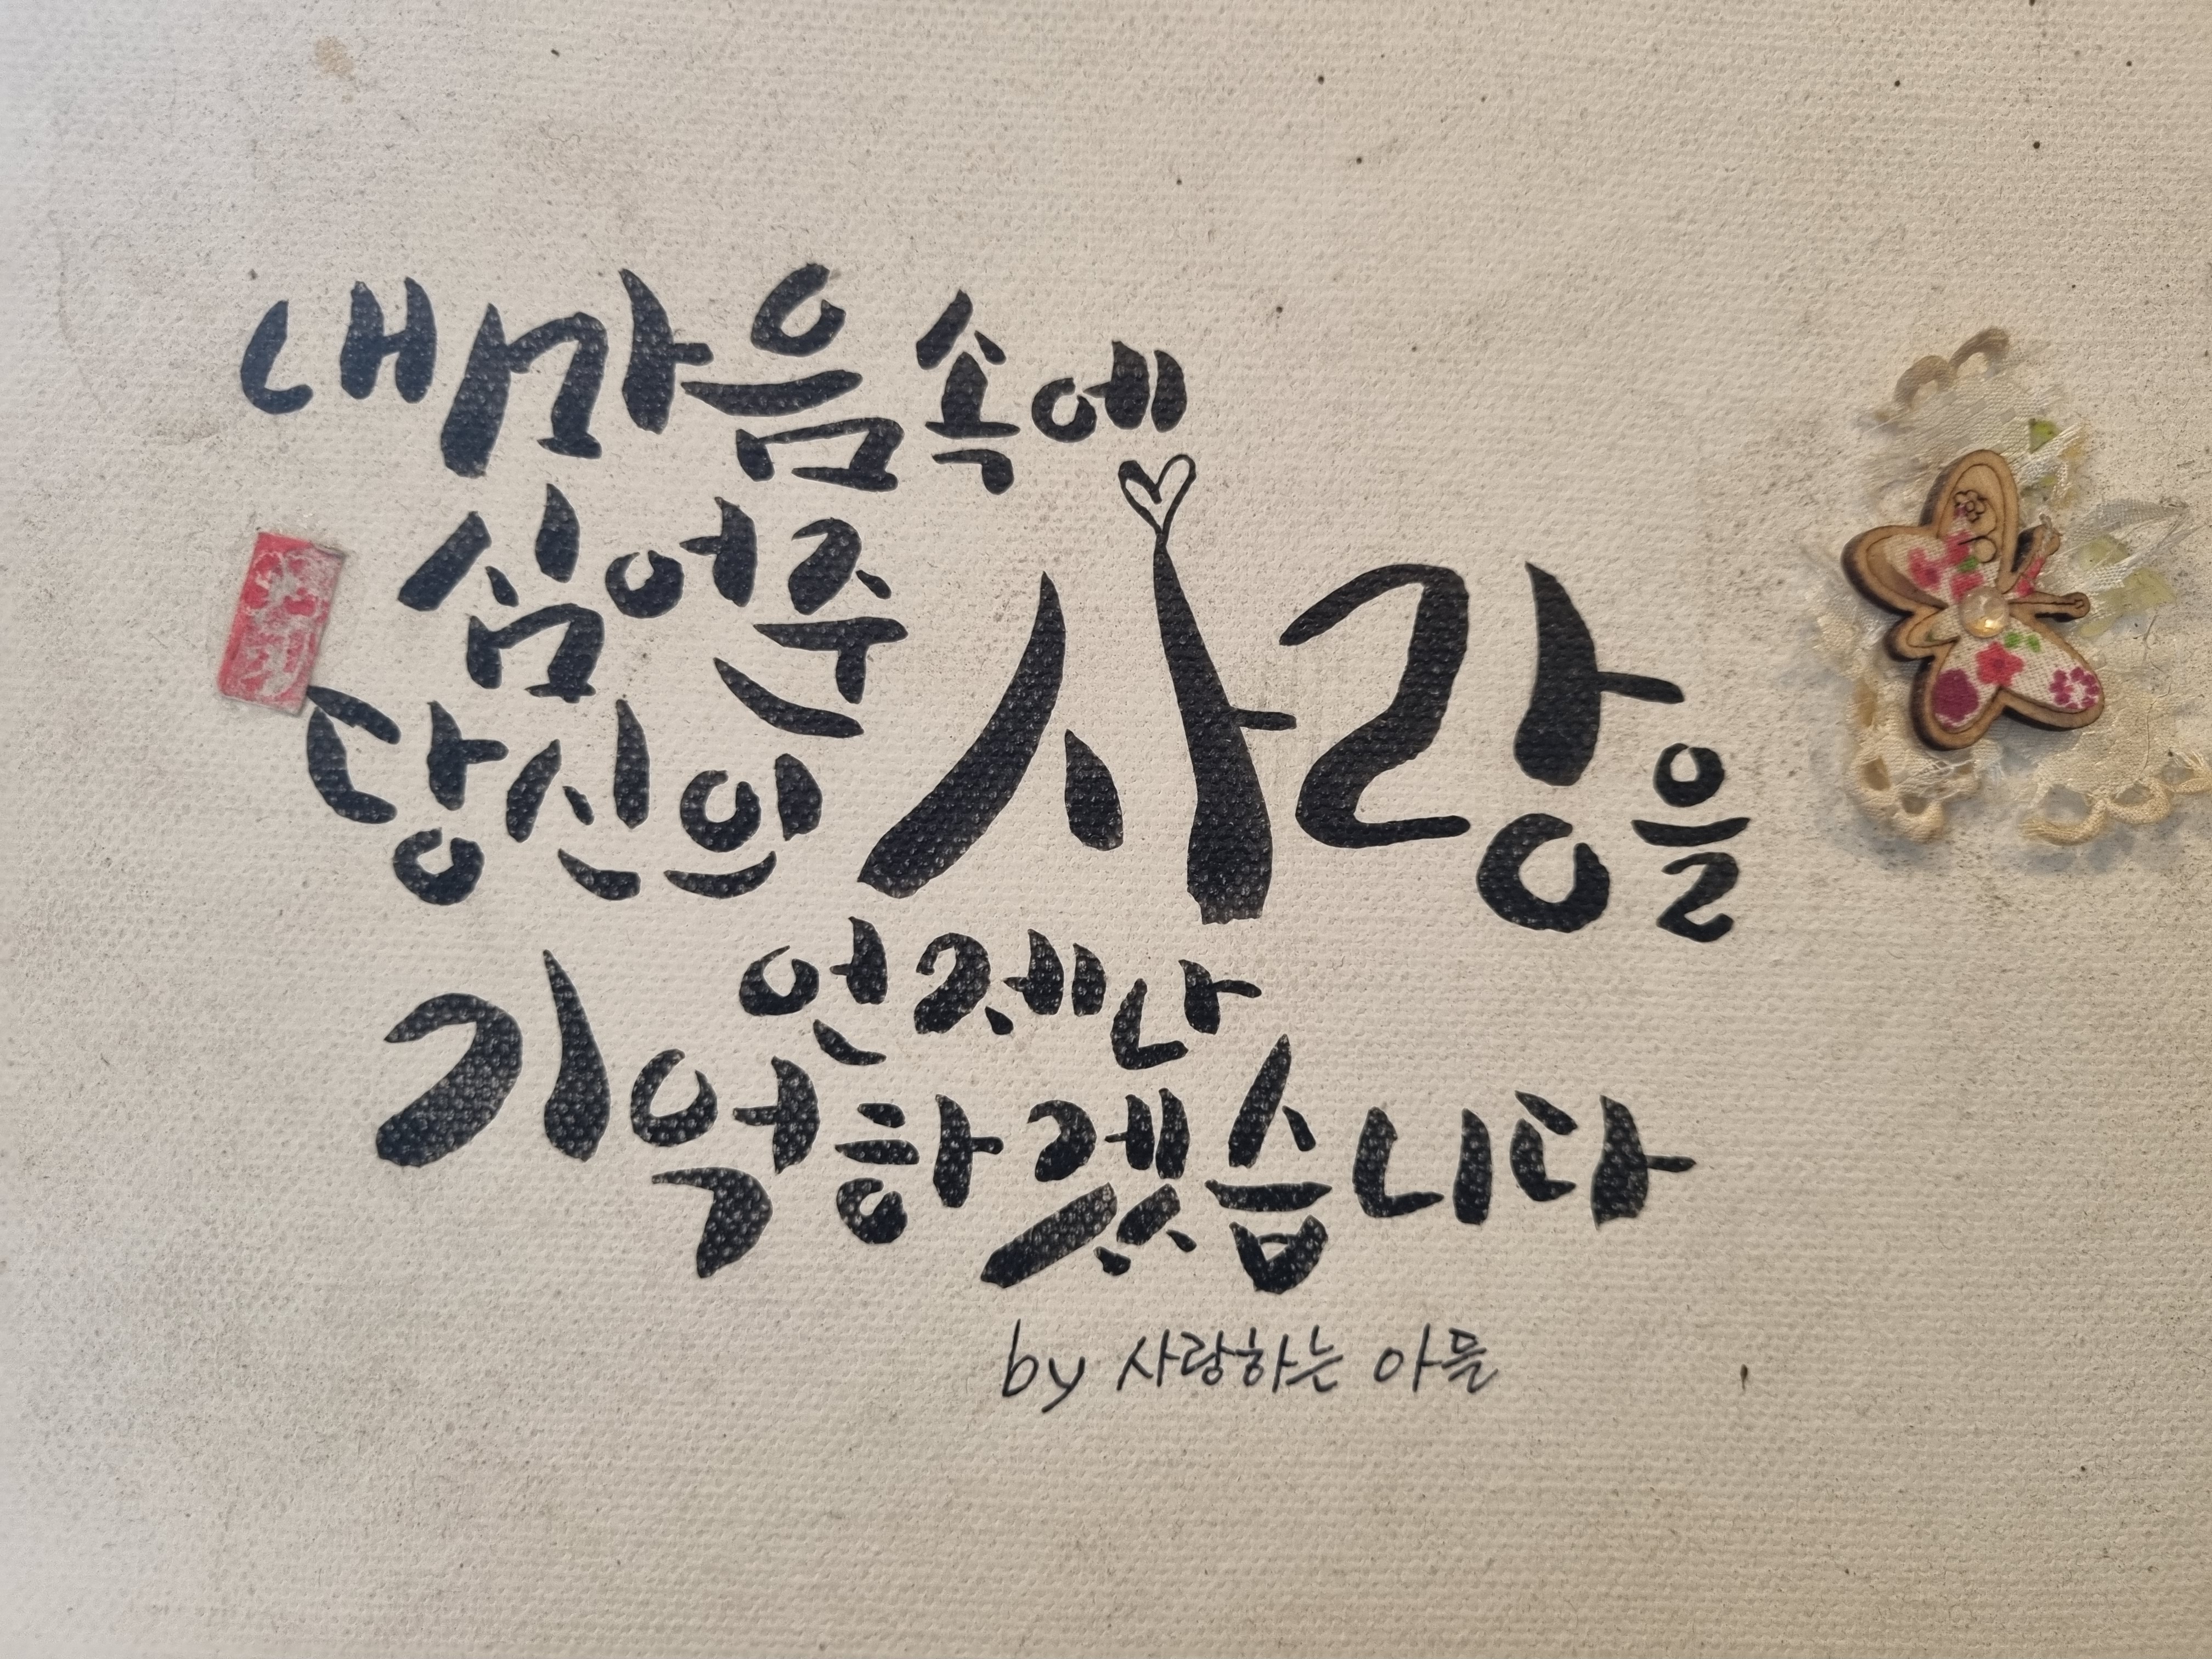 내 마음 속에
심어준
당신의 사랑을
언제나
기억하겠습니다
by 사랑하는 아들